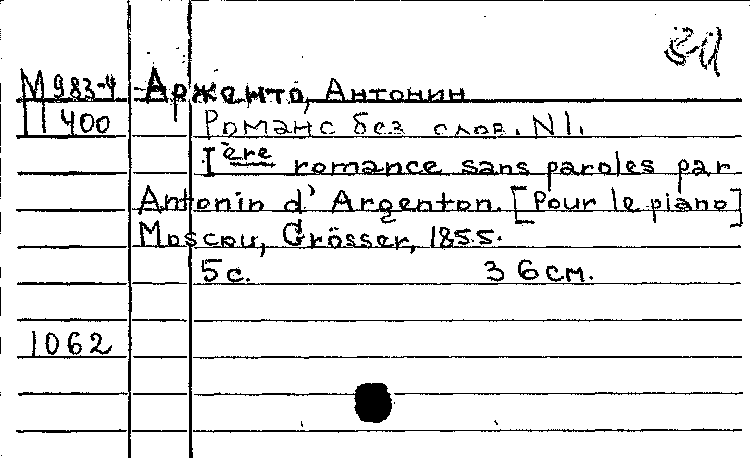 М983-4 Арженто, Антонин
П400 Романс без слов. N1.
I ère romance sans paroles par
Antonin d' Argenton. [Pour le piano]
Moscou, Grösser, 1855.
5 с. 36 см.
1062